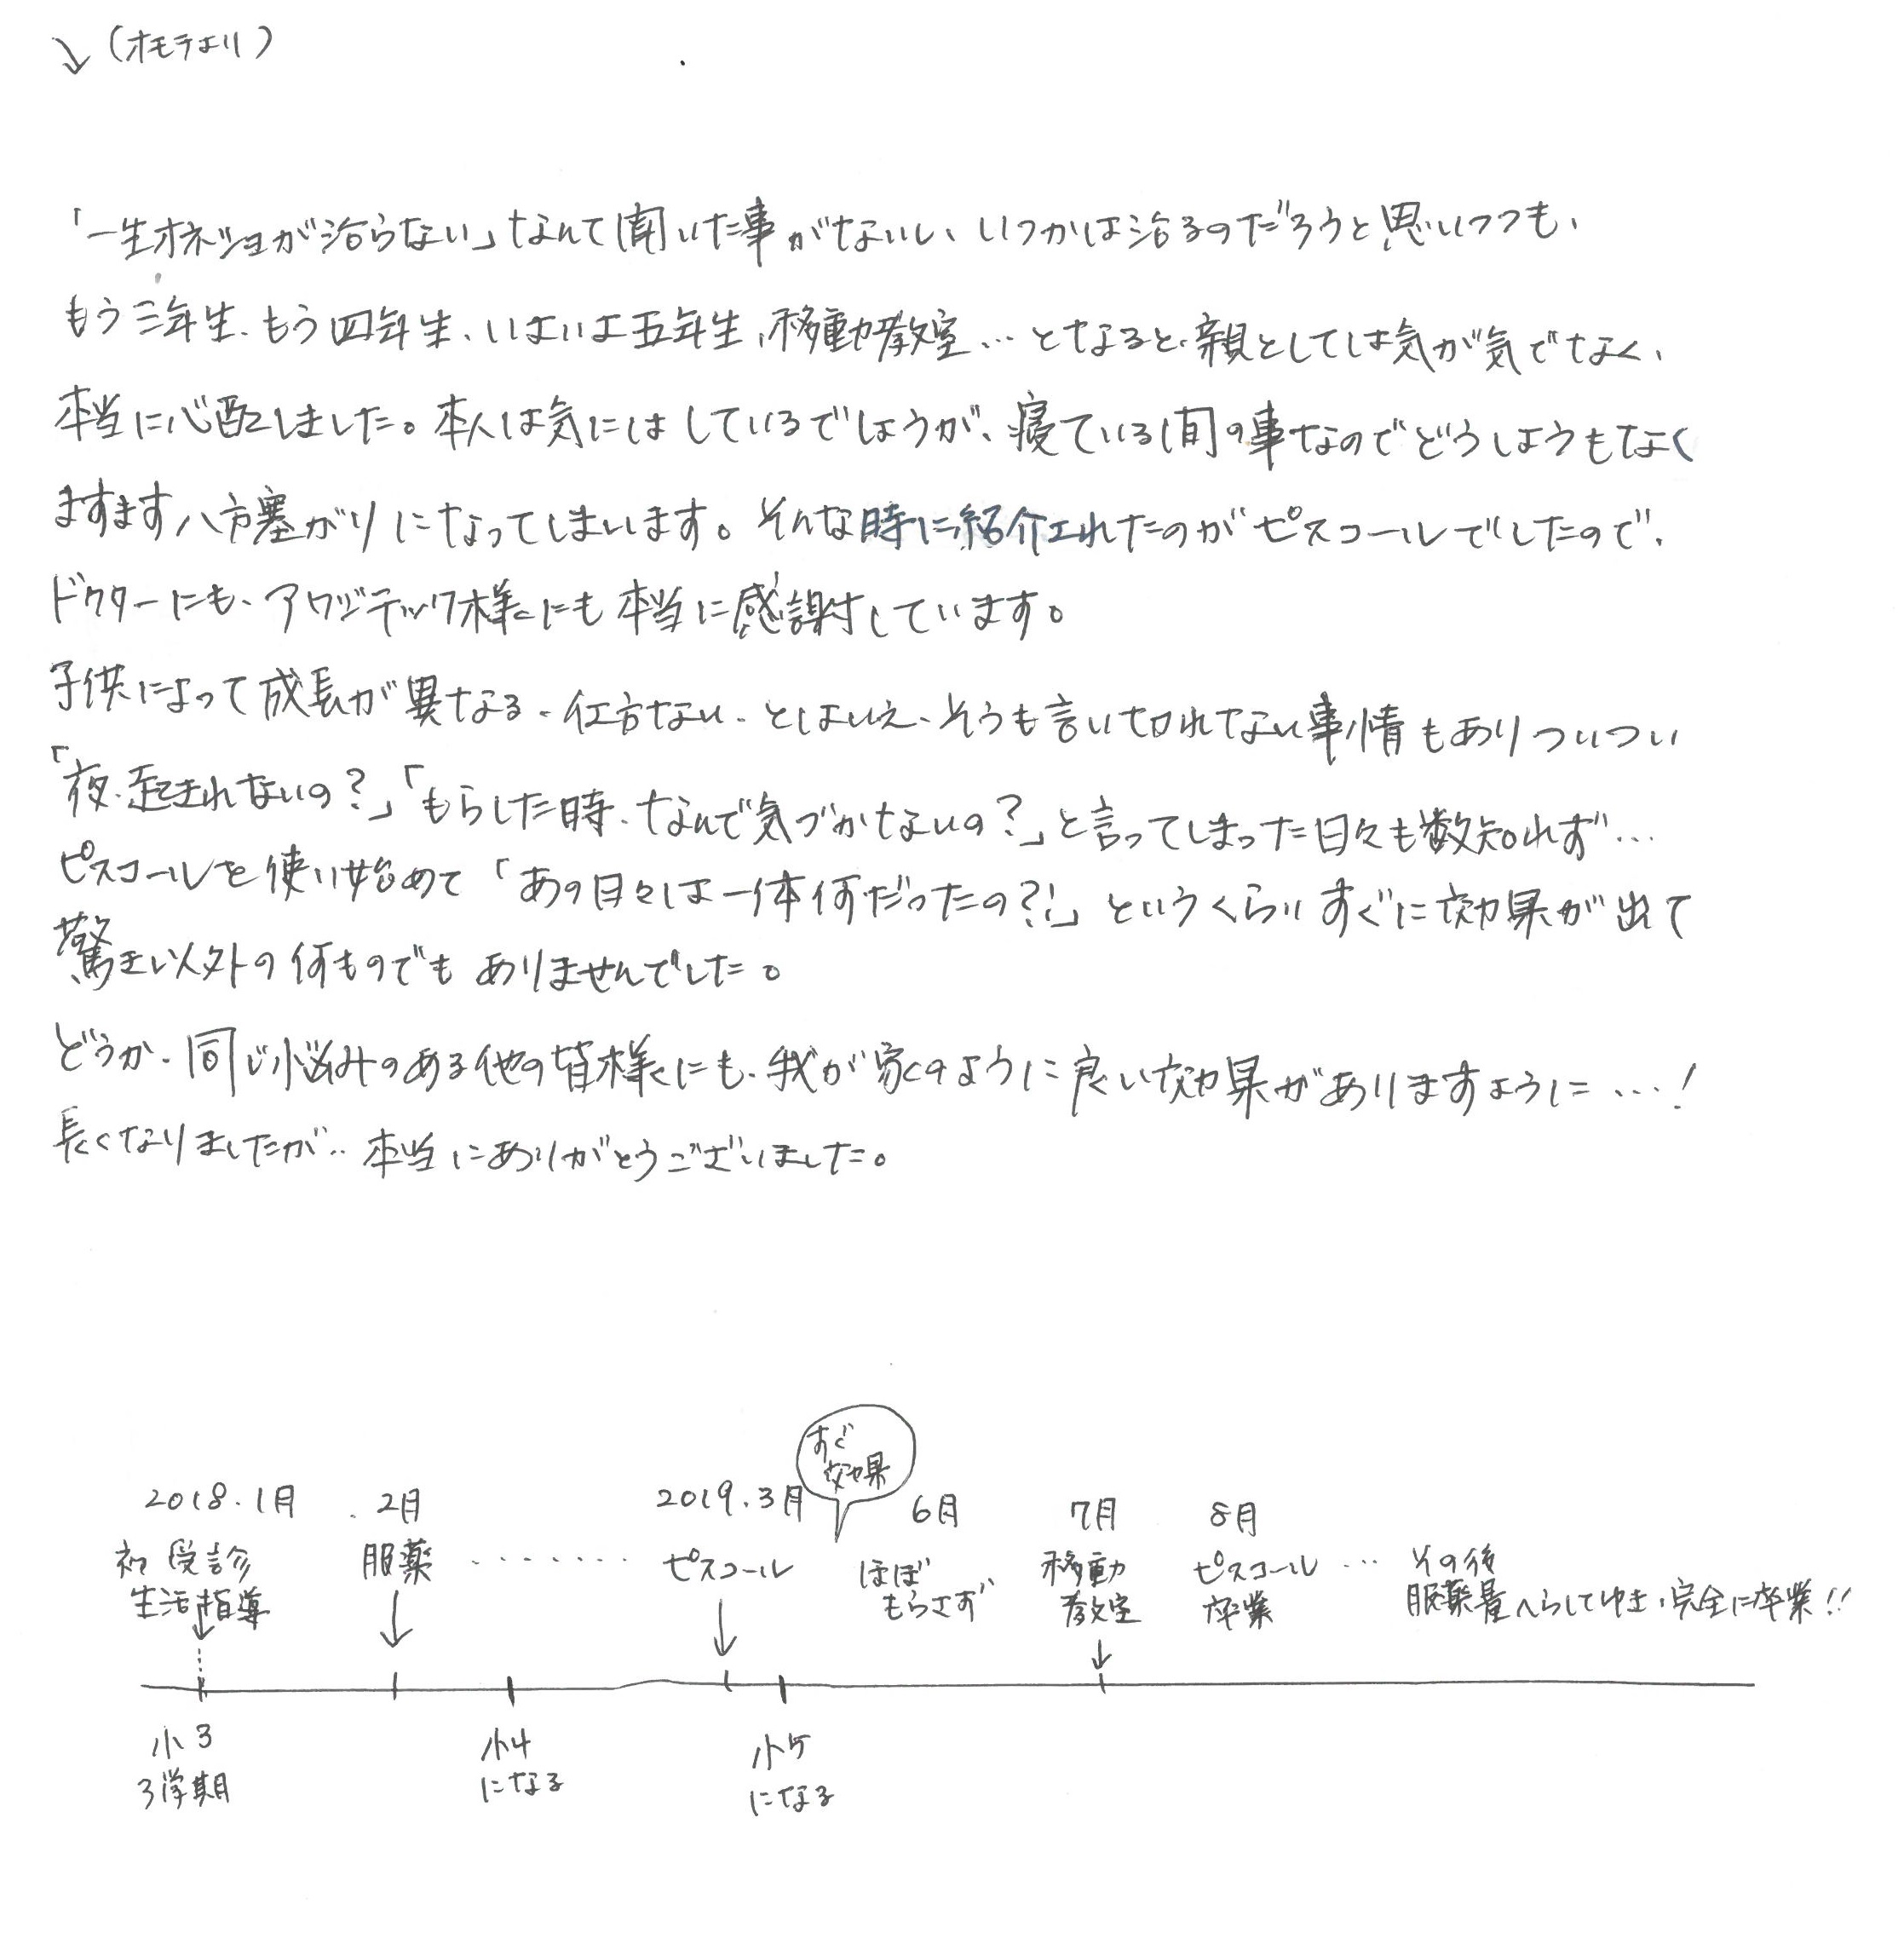 ↓(オモテより)
「一生オネショが治らない」なんて聞いた事がないし、いつかは治るのだろうと思いつつも、
もう三年生、もう四年生、いよいよ五年生、移動教室…となると、親としては気が気でなく、
本当に心配しました。本人は気にはしているでしょうが、寝ている間の事なのでどうしようもなく
ますます八方塞がりになってしまいます。そんな時に紹介されたのがピスコールでしたので、
ドクターにも、アワジテック様にも本当に感謝しています。
子供によって成長が異なる、仕方ない、とはいえ、そうも言い切れない事情もありついつい
「夜、起きれないの?」「もらした時、なんで気づかないの?」と言ってしまった日々も数知れず…
ピスコールを使い始めて「あの日々は一体何だったの?!」というくらいすぐに効果が出て
驚き以外の何ものでもありませんでした。
どうか、同じ悩みのある他の皆様にも、我が家のように良い効果がありますように…!
長くなりましたが‥本当にありがとうございました。
すぐ
効果
2018.1月 2月 2019.3月 6月 7月 8月
初受診 服薬 ‥‥‥‥ ピスコール ほぼ 移動 ピスコール … その後
生活指導 もらさず 教室 卒業 服薬量へらしてゆき、完全に卒業!!
小3 小4 小5
3学期 になる になる